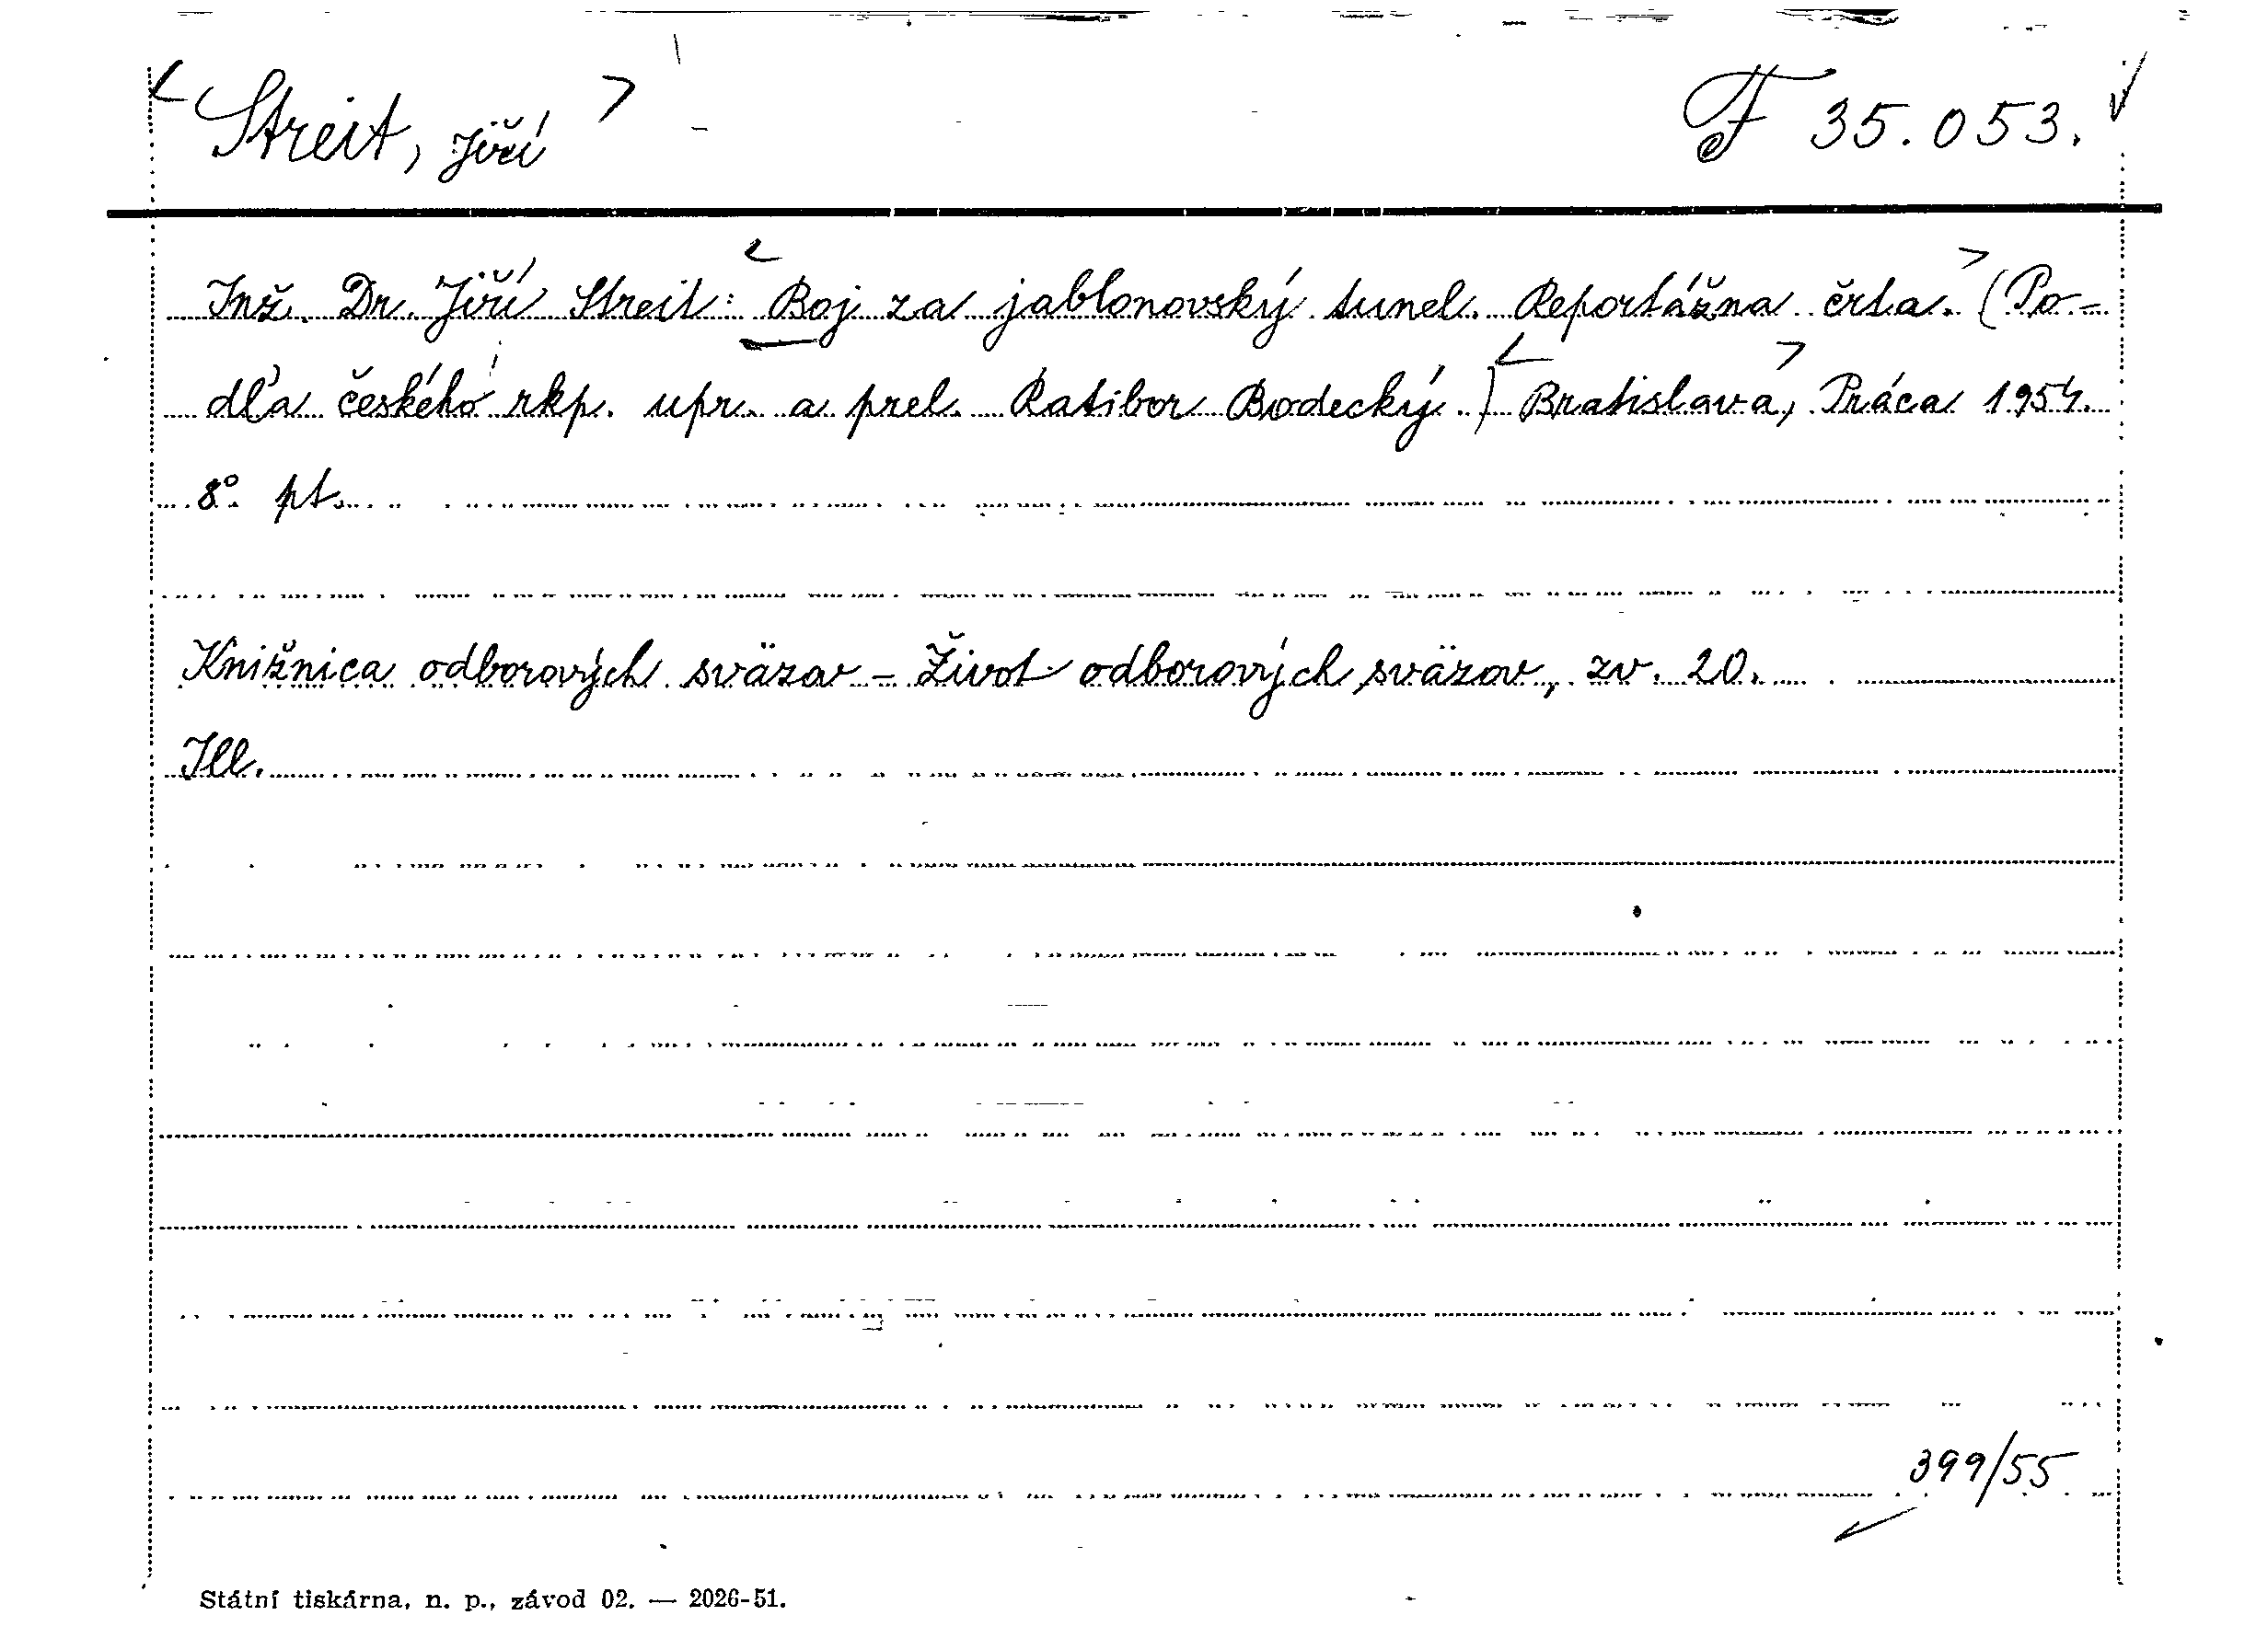 < Streit, Jiří > F 35.053. √
Inž. Dr. Jiří Streit: < Boj za jablonovský tunel. Reportážna črta. > (Po-
dľa českého rkp. upr. a prel. Ratibor Bodecký.) < Bratislava, > Práca 1954.
8°. pt.
Knižnica odborových sväzov - Život odborových sväzov, zv. 20.
Ill.
399/55
Státní tiskárna, n. p., závod 02. — 2026-51.